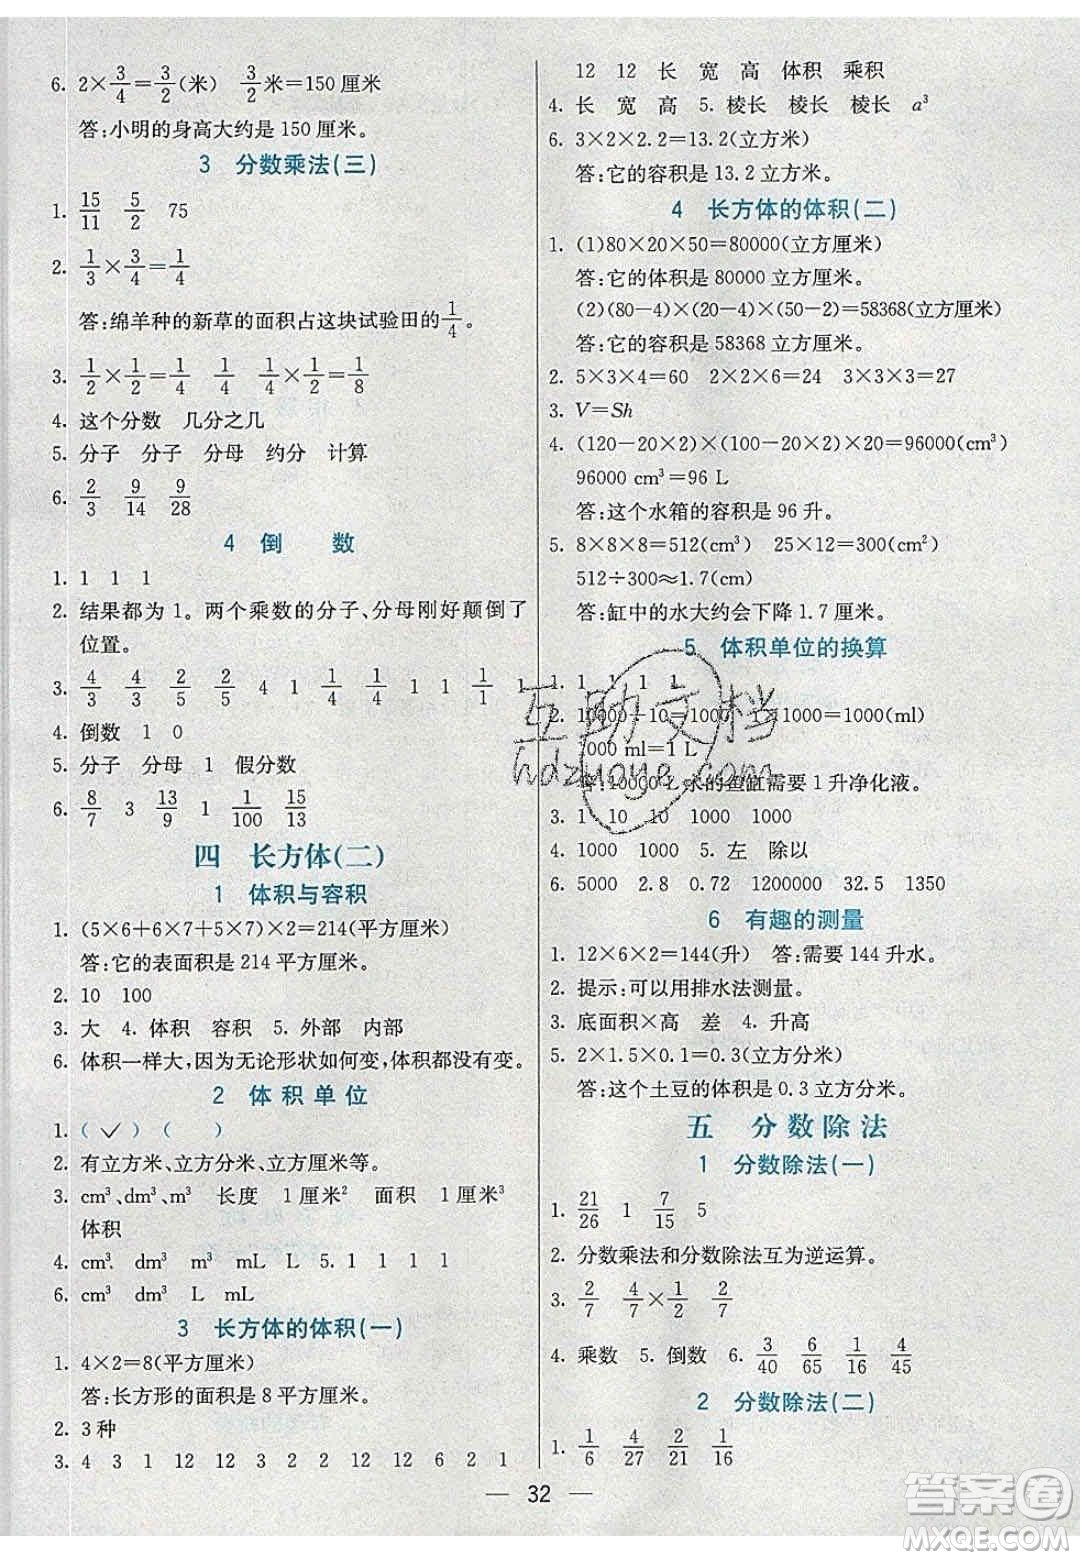 6. 2×3/4=3/2(米) 3/2米=150厘米
答:小明的身高大约是150厘米。
3 分数乘法(三)
1. 15/11 5/2 75
2. 1/3×3/4=1/4
答:绵羊种的新草的面积占这块试验田的1/4。
3. 1/2×1/2=1/4 1/4 1/4×1/2=1/8
4. 这个分数 几分之几
5. 分子 分子 分母 约分 计算
6. 2/3 9/14 9/28
4 倒 数
1. 1 1 1
2. 结果都为1。两个乘数的分子、分母刚好颠倒了
位置。
3. 4/3 4/3 2/5 2/5 4 1 1/4 1 1 1/1 1/1
4. 倒数 1 0
5. 分子 分母 1 假分数
6. 8/7 3 13/9 1 1/100 15/13
四 长方体(二)
1 体积与容积
1. (5×6+6×7+5×7)×2=214(平方厘米)
答:它的表面积是214平方厘米。
2. 10 100
3. 大 4. 体积 容积 5. 外部 内部
6. 体积一样大,因为无论形状如何变,体积都没有变。
2 体积单位
1. ( ✓ ) ( )
2. 有立方米、立方分米、立方厘米等。
3. cm³、dm³、m³ 长度 1厘米² 面积 1厘米³
体积
4. cm³ dm³ m³ mL L 5. 1 1 1 1
6. cm³ dm³ L mL
3 长方体的体积(一)
1. 4×2=8(平方厘米)
答:长方形的面积是8平方厘米。
2. 3种
3. 4 3 1 12 12 3 2 2 12 12 6 2 1
12 12 长 宽 高 体积 乘积
4. 长 宽 高 5. 棱长 棱长 棱长 a³
6. 3×2×2.2=13.2(立方米)
答:它的容积是13.2立方米。
4 长方体的体积(二)
1. (1)80×20×50=80000(立方厘米)
答:它的体积是80000立方厘米。
(2)(80-4)×(20-4)×(50-2)=58368(立方厘米)
答:它的容积是58368立方厘米。
2. 5×3×4=60 2×2×6=24 3×3×3=27
3. V=Sh
4. (120-20×2)×(100-20×2)×20=96000(cm³)
96000 cm³=96 L
答:这个水箱的容积是96升。
5. 8×8×8=512(cm³) 25×12=300(cm²)
512÷300≈1.7(cm)
答:缸中的水大约会下降1.7厘米。
5 体积单位的换算
1. 1 1 1 1 1
2. 10000÷10=1000 1×1000=1000(ml)
1000 ml=1 L
答:10000 L水的鱼缸需要1升净化液。
3. 1 10 10 1000 1000
4. 1000 1000 5. 左 除以
6. 5000 2.8 0.72 1200000 32.5 1350
6 有趣的测量
1. 12×6×2=144(升) 答:需要144升水。
2. 提示:可以用排水法测量。
3. 底面积×高 差 4. 升高
5. 2×1.5×0.1=0.3(立方分米)
答:这个土豆的体积是0.3立方分米。
五 分数除法
1 分数除法(一)
1. 21/26 1 7/15 5
2. 分数乘法和分数除法互为逆运算。
3. 2/7 4/7×1/2 2/7
4. 乘数 5. 倒数 6. 3/40 6/65 1/16 4/45
2 分数除法(二)
1. 1/6 4/27 1/4 1/16
— 32 —
互助文档
hdzuoye.com
答案圈
MXQE.COM